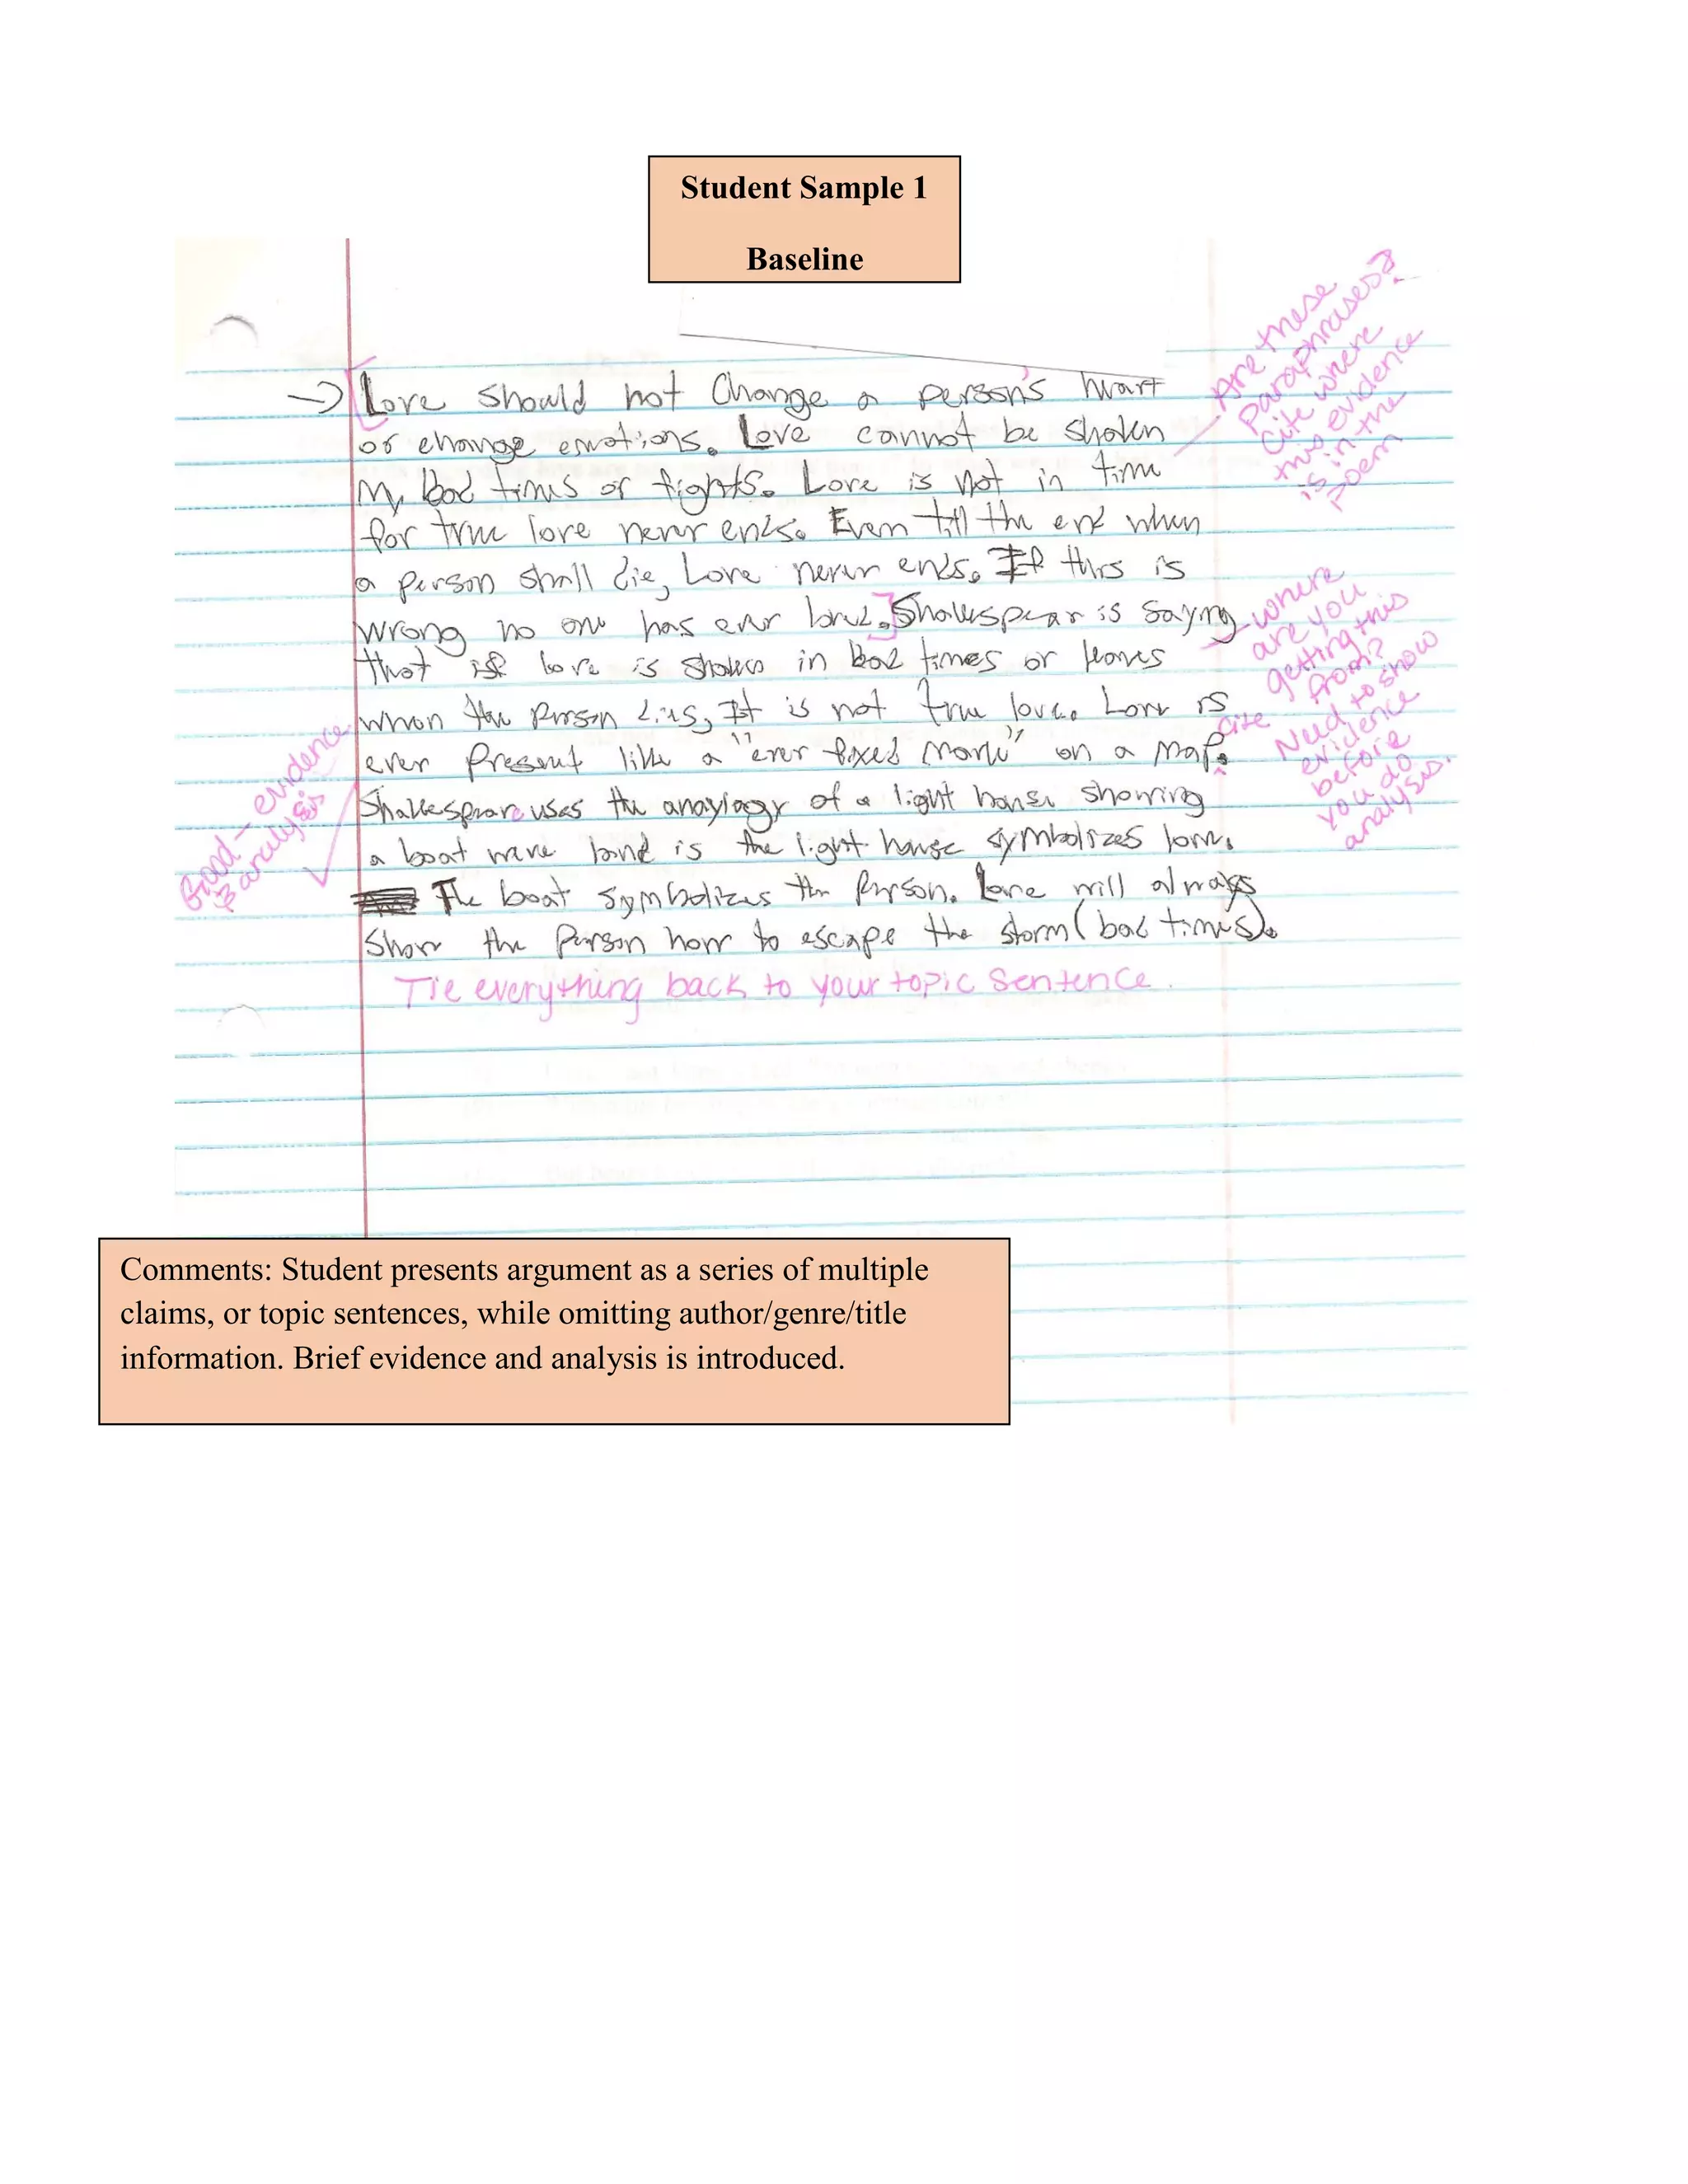 Student Sample 1
Baseline
→ Love should not change a person's heart
or change emotions. Love cannot be shaken
My bad times or fights. Love is not in time
for true love never ends. Even till the end when
a person shall die, Love never ends. If this is
wrong no one has ever loved. Shakespear is saying
that if love is shaken in bad times or leaves
when the person dies, It is not true love. Love is
ever present like a "ever fixed mark" on a map.
Shakespeare uses the anaylogy of a light house showing
a boat were land is the light house symbolizes love.
The boat symbolizes the person. Love will always
Show the person how to escape the storm (bad times).
Tie everything back to your topic sentence.
Are these
paraphrases?
Cite where
this evidence
is in the
poem
where
are you
getting this
from?
Need to show
evidence
before
you do
analysis.
cite
Good - evidence
& analysis
Comments: Student presents argument as a series of multiple
claims, or topic sentences, while omitting author/genre/title
information. Brief evidence and analysis is introduced.